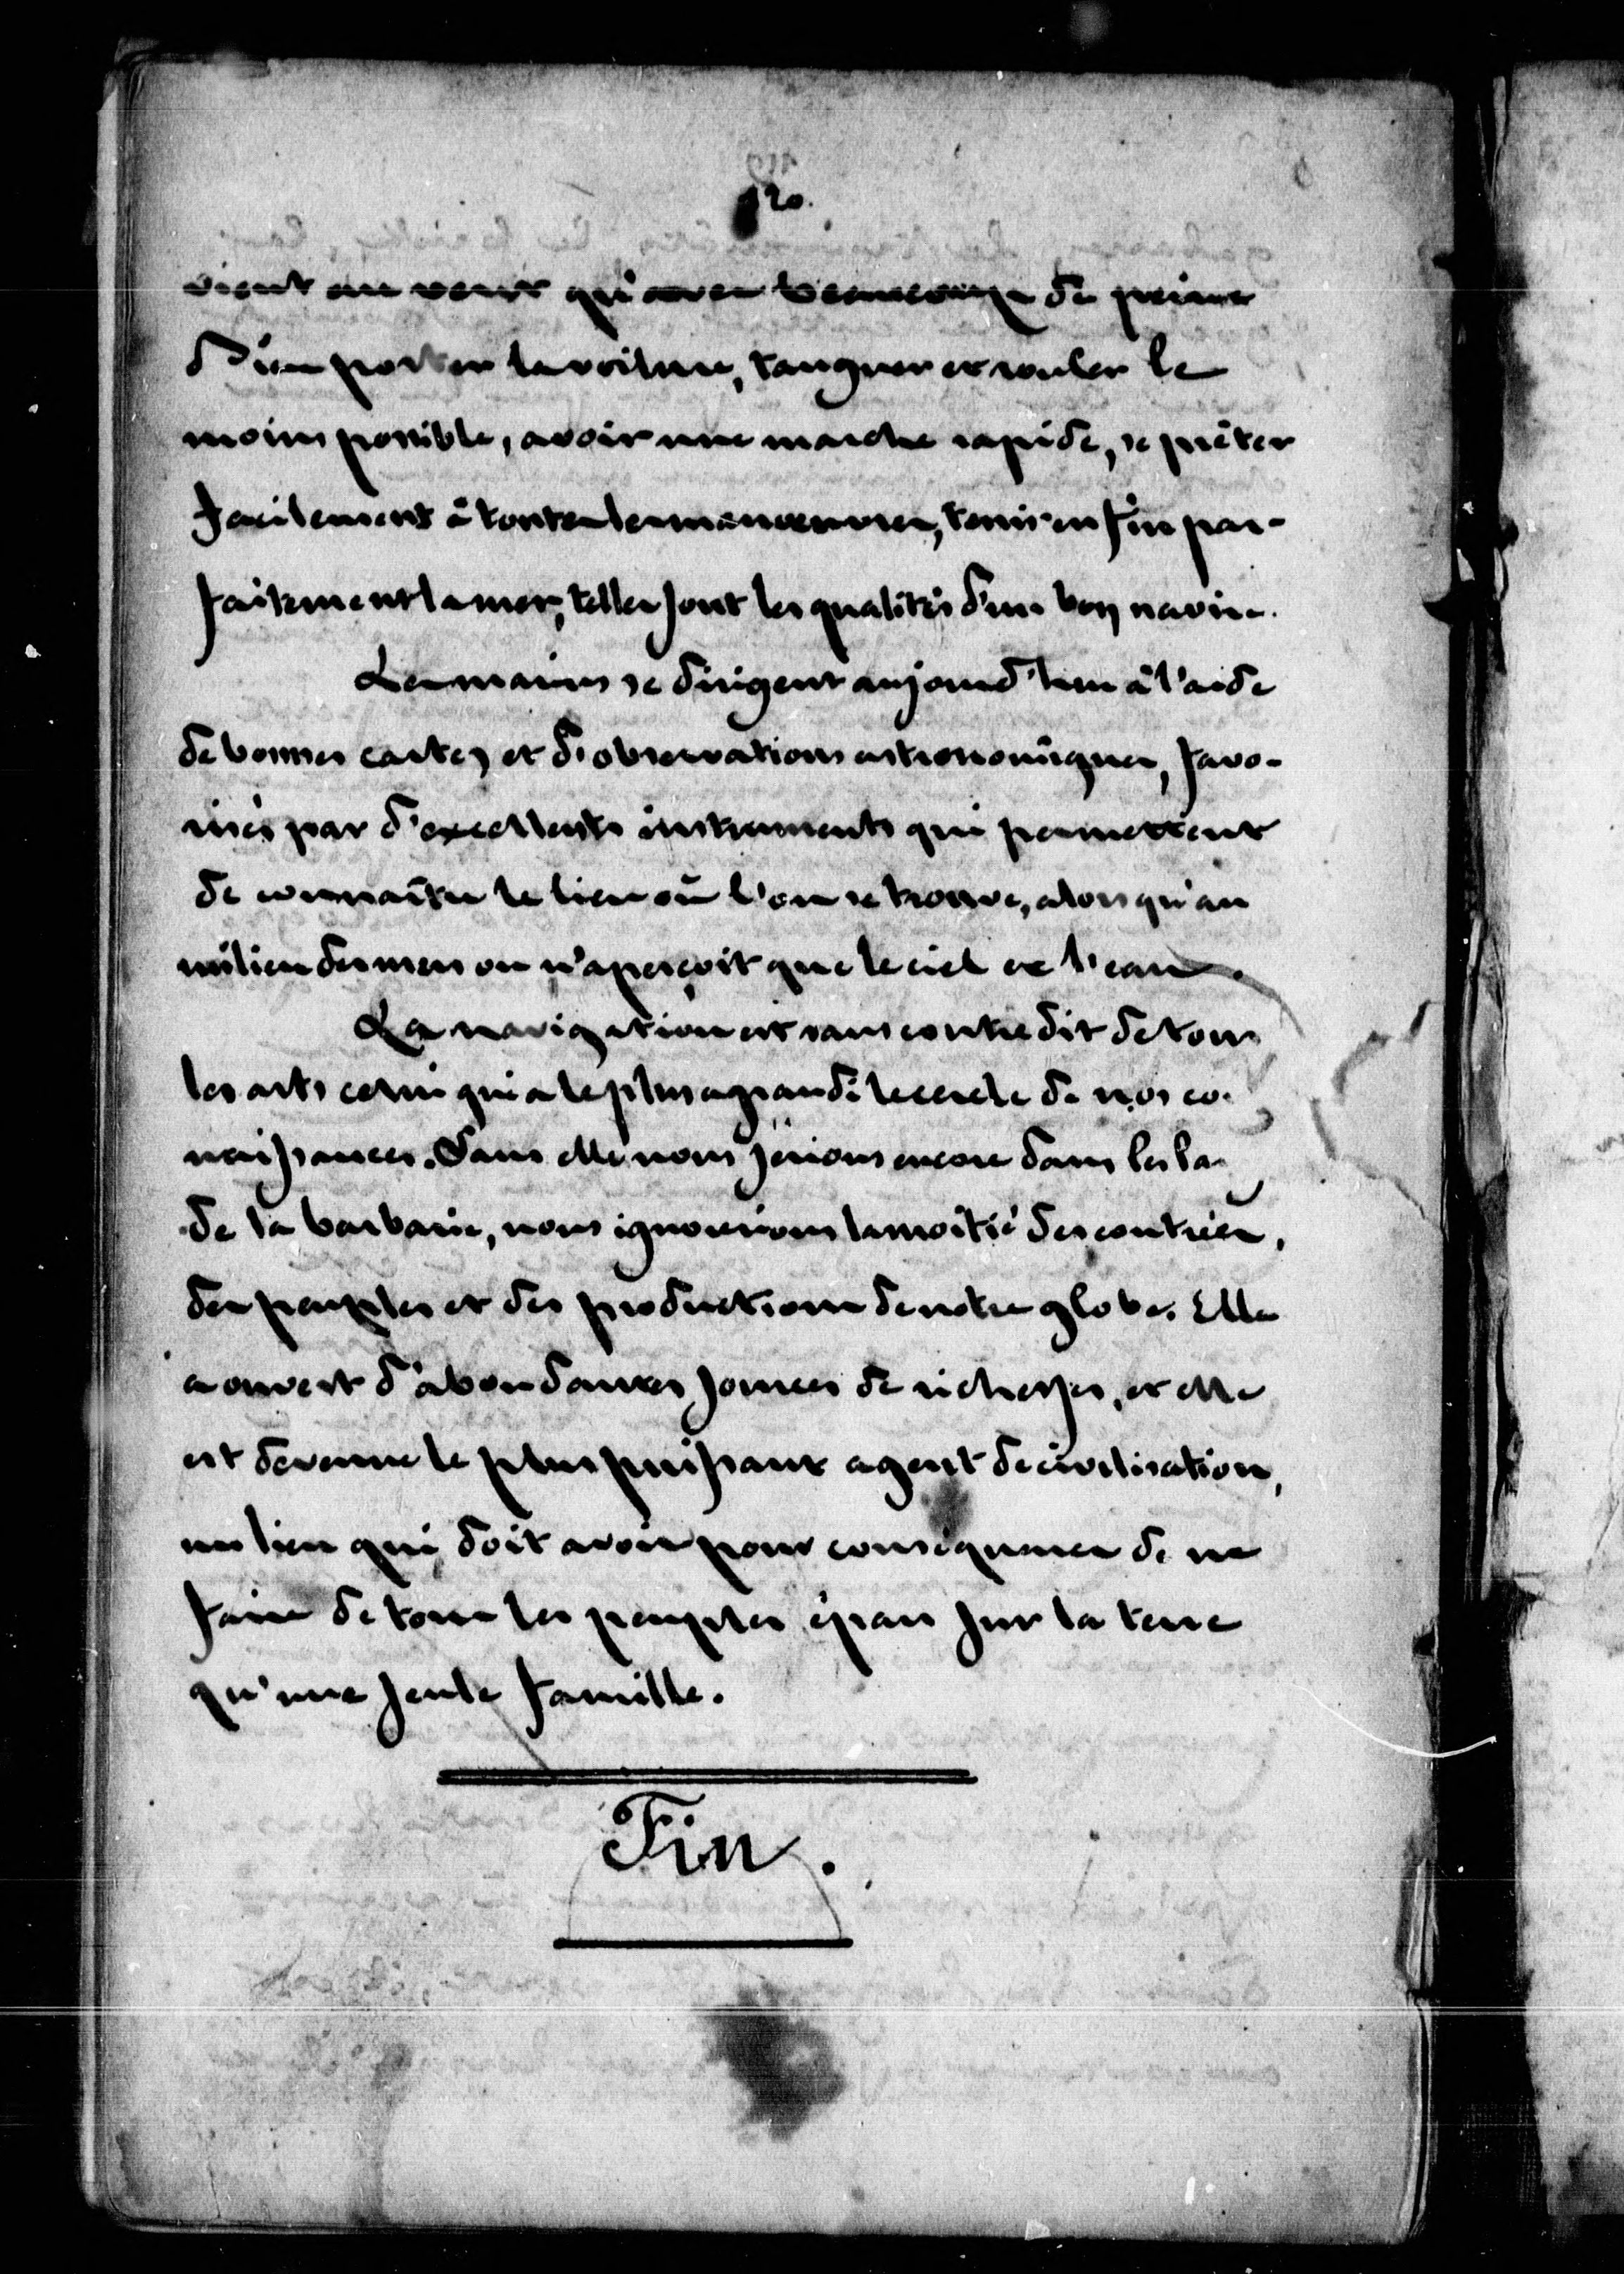 120.
vient au vent qu'avec beaucoup de peine
bien porter la voilure, tanguer et rouler le
moins possible, avoir une marche rapide, se prêter
facilement à toutes les manoeuvres, tenir enfin par-
faitement la mer, telles sont les qualités d'un bon navire.
Les marins se dirigent aujourd'hui à l'aide
de bonnes cartes et d'observations astronomiques, favo-
risés par d'excellents instruments qui permettent
de connaître le lieu où l'on se trouve, alors qu'au
milieu des mers on n'aperçoit que le ciel et l'eau.
La navigation est sans contredit de tous
les arts celui qui a le plus agrandi le cercle de nos co
naissances. Sans elle nous serions encore dans les
de la barbarie, nous ignorerions la moitié des contrées,
des peuples et des productions de notre globe. Elle
a ouvert d'abondantes sources de richesses, et elle
est devenue le plus puissant agent de civilisation,
un lien qui doit avoir pour conséquence de ne
faire de tous les peuples épars sur la terre
qu'une seule famille.
Fin.